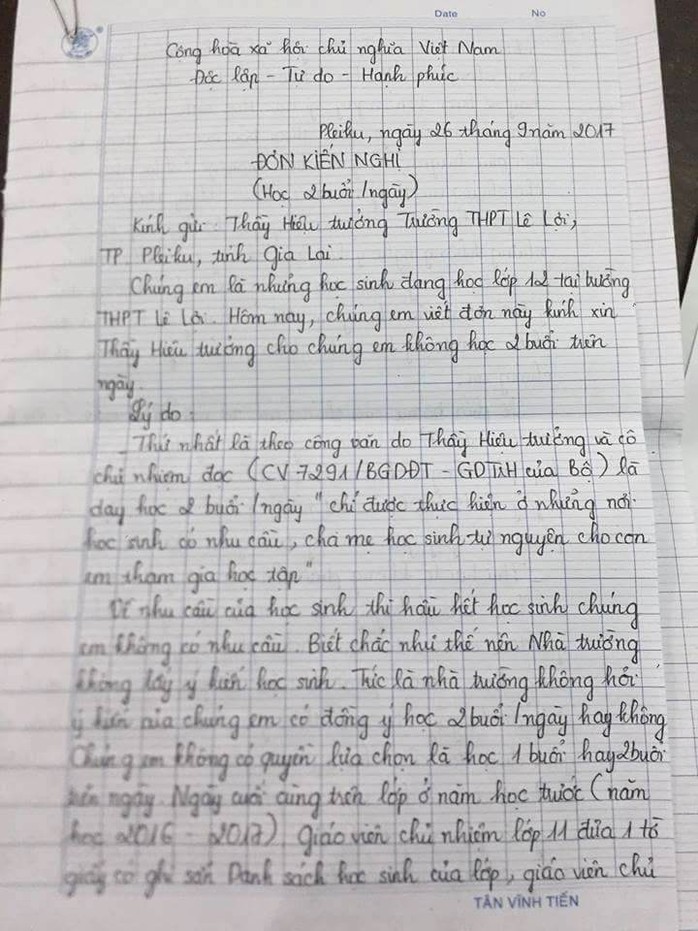 Date No
Cộng hoà xã hội chủ nghĩa Việt Nam
Độc lập - Tự do - Hạnh phúc
Pleiku, ngày 26 tháng 9 năm 2017
ĐƠN KIẾN NGHỊ
(Học 2 buổi/ngày)
Kính gửi: Thầy Hiệu trưởng Trường THPT Lê Lợi,
TP Pleiku, tỉnh Gia Lai.
Chúng em là những học sinh đang học lớp 12 tại trường
THPT Lê Lợi. Hôm nay, chúng em viết đơn này kính xin
Thầy Hiệu trưởng cho chúng em không học 2 buổi trên
ngày.
Lý do:
_ Thứ nhất là theo công văn do Thầy Hiệu trưởng và cô
chủ nhiệm đọc (CV 7291/BGDĐT - GDTrH của Bộ) là
dạy học 2 buổi/ngày "chỉ được thực hiện ở những nơi
học sinh có nhu cầu, cha mẹ học sinh tự nguyện cho con
em tham gia học tập"
Về nhu cầu của học sinh thì hầu hết học sinh chúng
em không có nhu cầu. Biết chắc như thế nên Nhà trường
không lấy ý kiến học sinh. Tức là nhà trường không hỏi
ý kiến của chúng em có đồng ý học 2 buổi/ngày hay không
Chúng em không có quyền lựa chọn là học 1 buổi hay 2 buổi
trên ngày. Ngày cuối cùng trên lớp ở năm học trước (năm
học 2016 - 2017) giáo viên chủ nhiệm lớp 11 đưa 1 tờ
giấy có ghi sẵn Danh sách học sinh của lớp, giáo viên chủ
TÂN VĨNH TIẾN